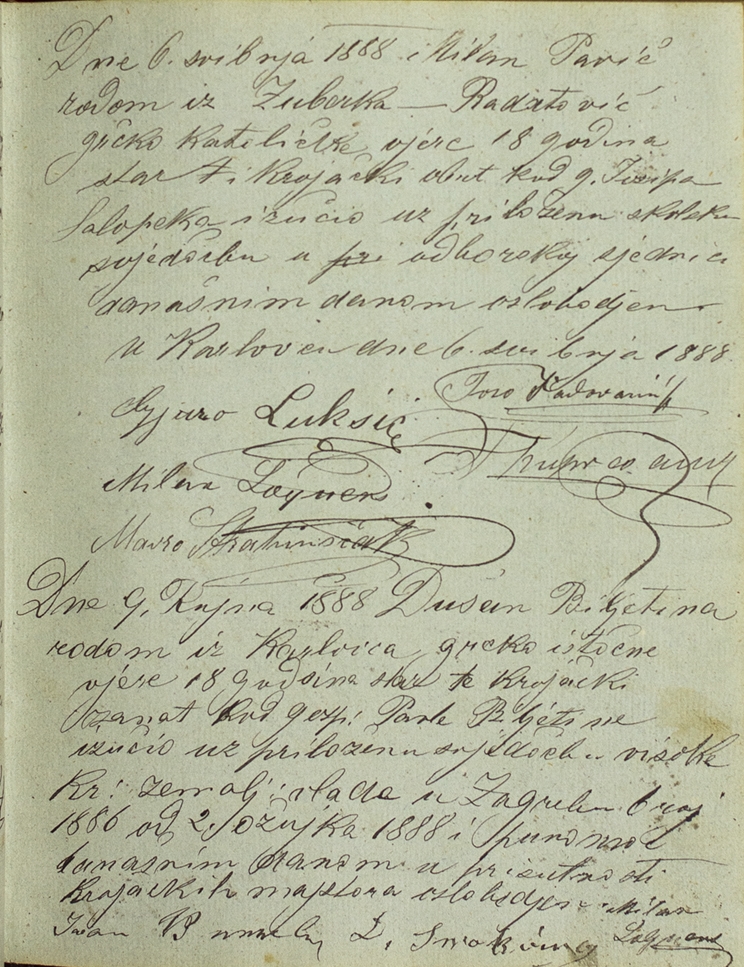 Dne 6. svibnja 1888 Milan Pavić
rodom iz Žuberka — Radatović
grčko katoličke vjere 18 godina
star i krojački obrt kod g. Josipa
Salopeka izučio uz priloženu školsku
svjedočbu u pri odborskoj sjednici
današnjim danom oslobodjen
u Karlovcu dne 6. svibnja 1888.
Gjuro Lukšić
Milan
Mavro
Dne 9. Rujna 1888 Dušan Biljetina
rodom iz Karlovca grčko istočne
vjere 18 godina star te krojački
zanat kod gosp: Pavle Biljetine
izučio uz priloženu svjedočbu visoke
kr: zemalj: vlade u Zagrebu broj
1886 od 2. ožujka 1888 i punomoć
današnim danom u prisutnosti
krojačkih majstora oslobodjen Milan
Ivan